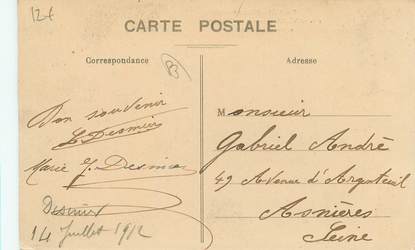 12€
CARTE POSTALE
Correspondance
Adresse
Bon souvenir
Marie
14 Juillet 1912
Monsieur
Gabriel André
49 Avenue d'Argenteuil
Asnières
Seine